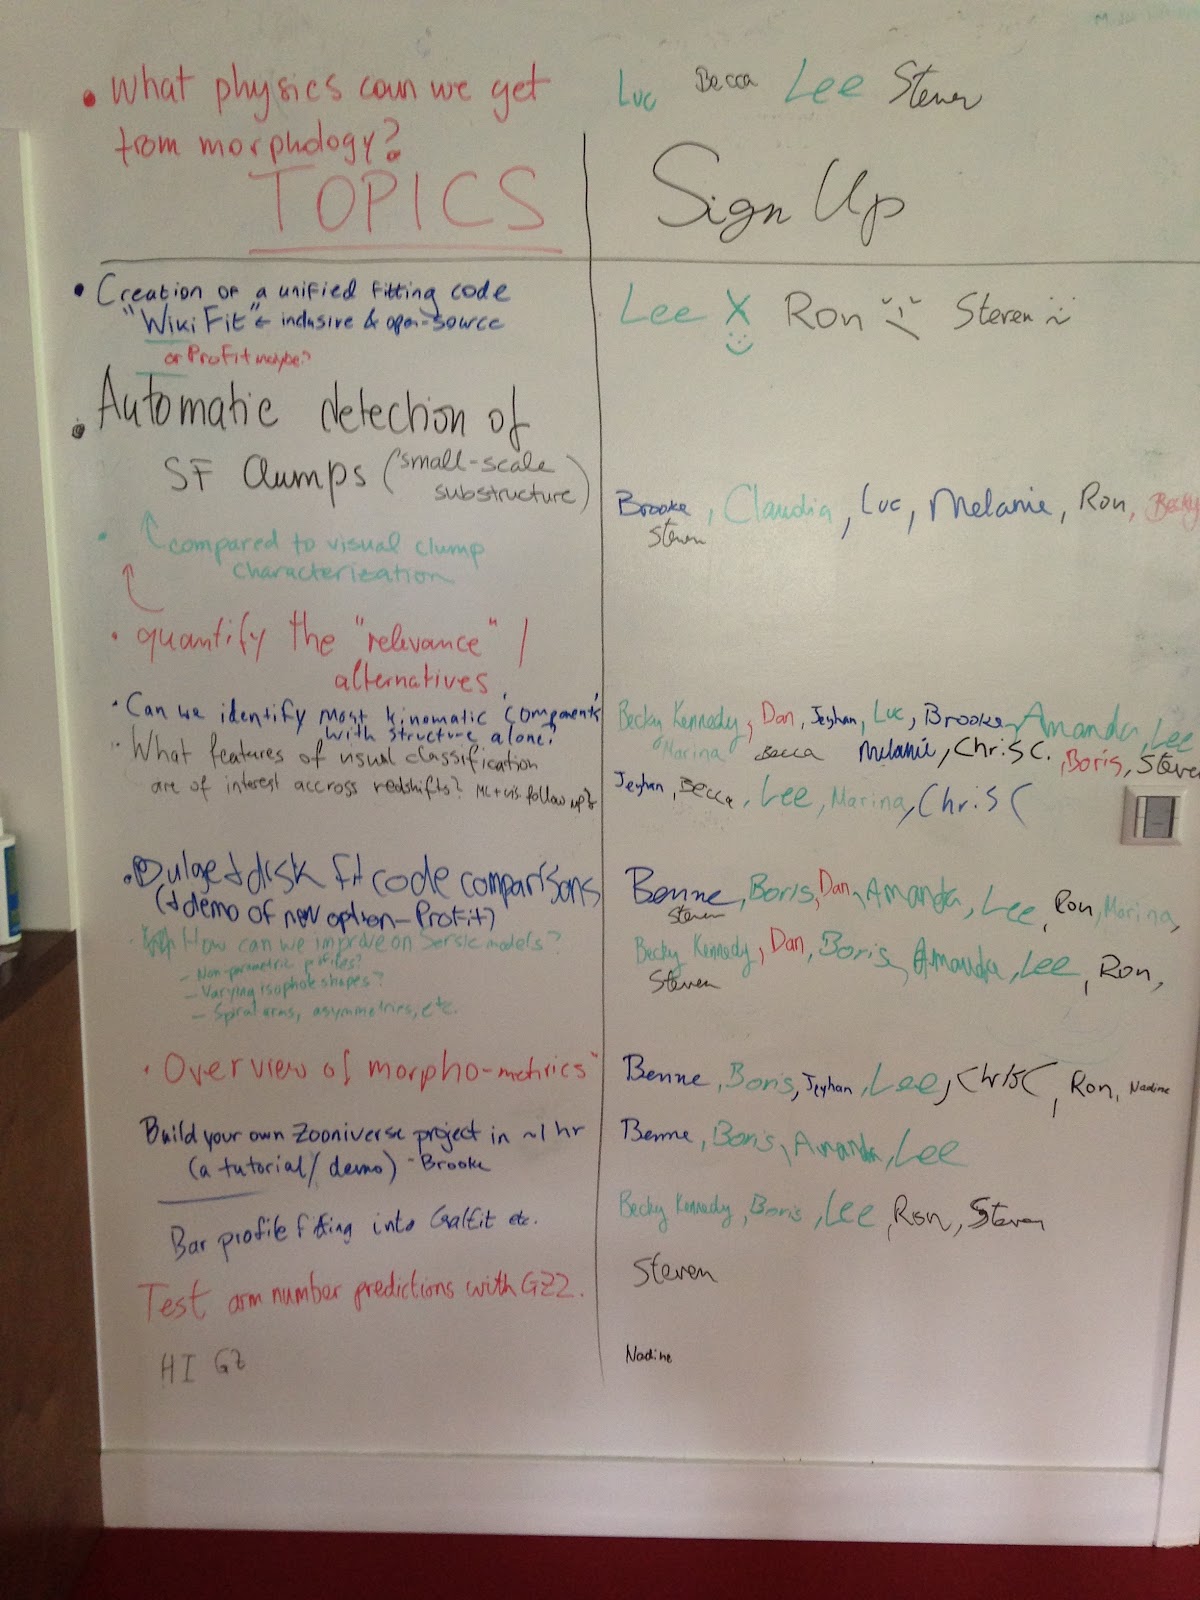 • What physics can we get
from morphology?
Luc Becca Lee Steven
TOPICS
Sign Up
• Creation of a unified fitting code
"WikiFit" ← inclusive & open-source
or ProFit maybe?
Lee X Ron Steven
• Automatic detection of
SF Clumps (small-scale
substructure)
Brooke, Claudia, Luc, Melanie, Ron, Becky
Steven
• compared to visual clump
characterization
• quantify the "relevance" /
alternatives
• Can we identify most kinematic 'components'
with structure alone?
Becky Kennedy, Dan, Jeyhan, Luc, Brooke, Amanda, Lee
Marina Becca Melanie, Chris C. Boris, Steven
• What features of visual classification
are of interest accross redshifts? ML + vis. follow up?
Jeyhan, Becca, Lee, Marina, Chris C
• Bulge + disk fit code comparisons
(+ demo of new option - Profit)
Benne, Boris, Dan, Amanda, Lee, Ron, Marina,
Steven
• How can we improve on Sersic models?
- Non-parametric profiles?
- Varying isophote shapes?
- Spiral arms, asymmetries, etc.
Becky Kennedy, Dan, Boris, Amanda, Lee, Ron,
Steven
• Overview of morpho-metrics"
Benne, Boris, Jeyhan, Lee, Chris C, Ron, Nadine
Build your own Zooniverse project in ~1 hr
(a tutorial/demo) - Brooke
Benne, Boris, Amanda, Lee
Bar profile fitting into Galfit etc.
Becky Kennedy, Boris, Lee, Ron, Steven
Test arm number predictions with GZ2.
Steven
HI GZ
Nadine